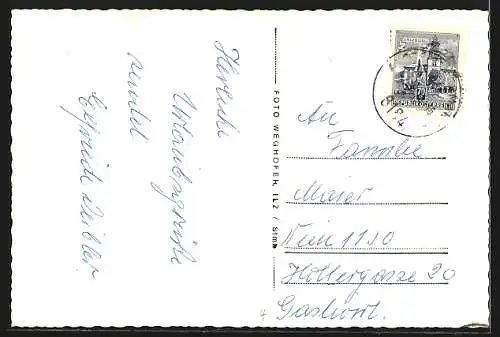 Herzliche
Urlaubsgrüße
sendet
Elfriede
FOTO WEGHOFER, ILZ / Stmk
REPUBLIK ÖSTERREICH
An
Familie
Maier
Wien 1190
Hollergasse 20
Gastwirt.
4